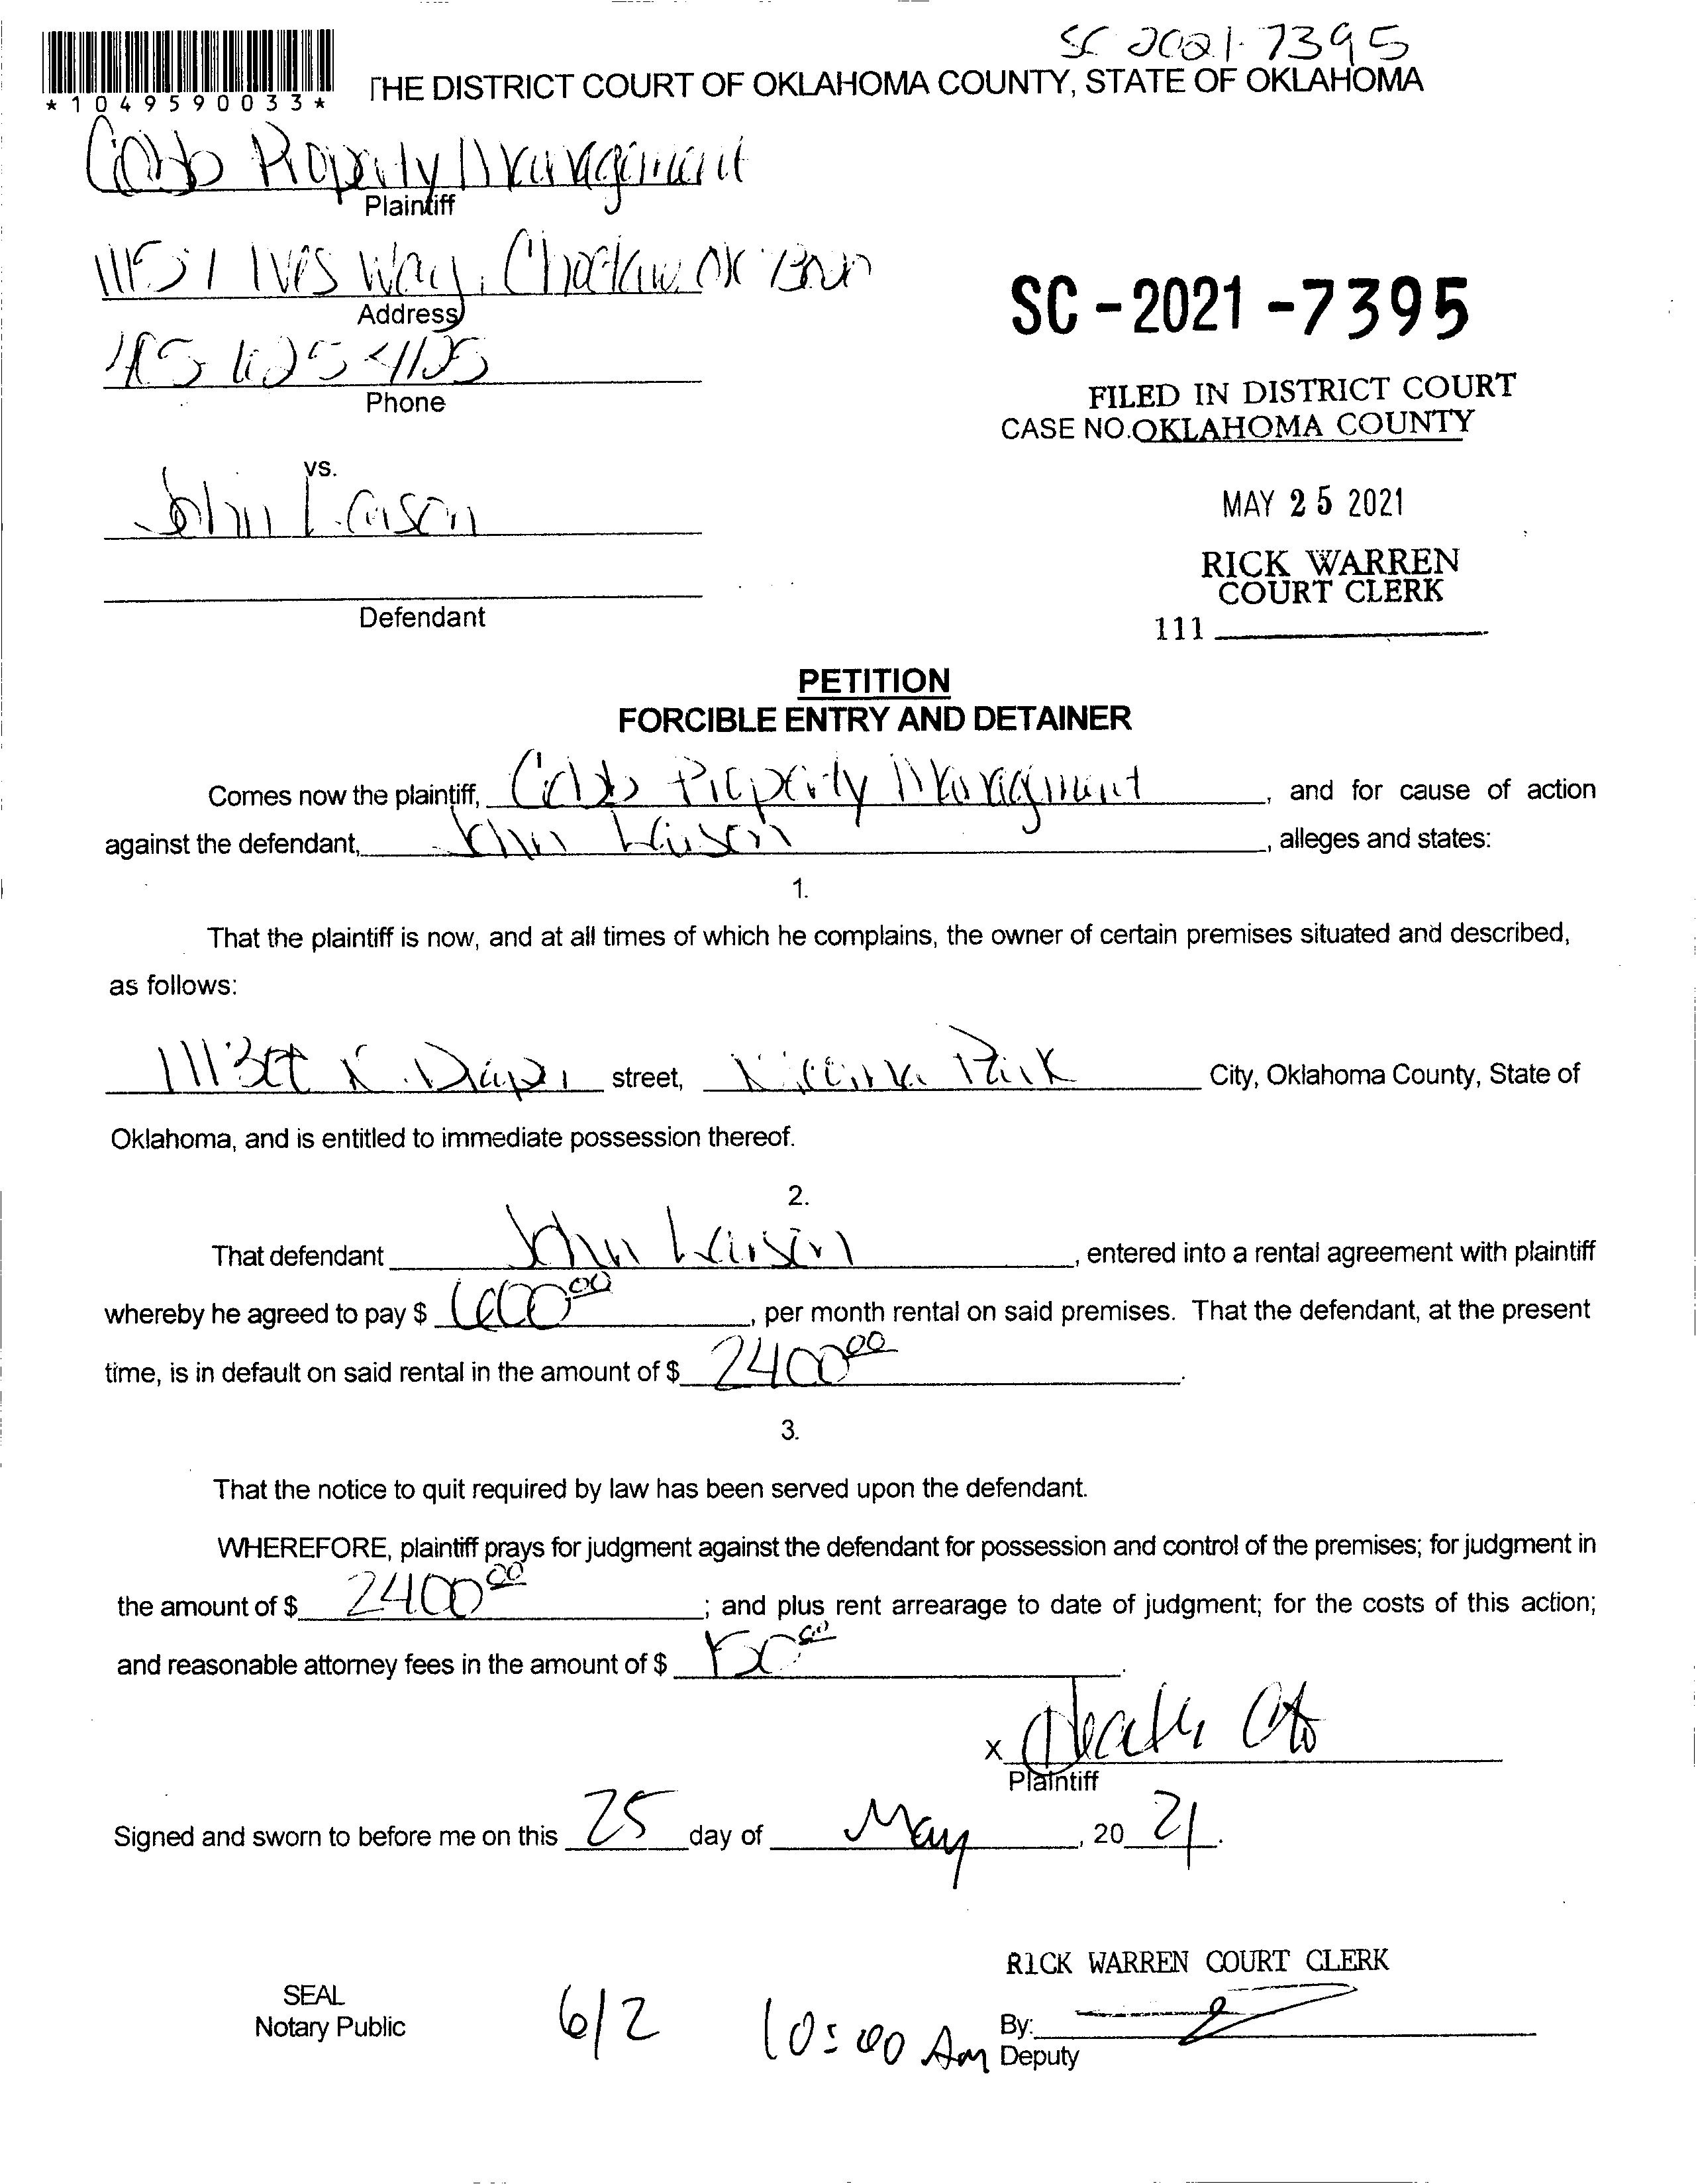 SC 2021-7395
*1049590033*
THE DISTRICT COURT OF OKLAHOMA COUNTY, STATE OF OKLAHOMA
Property Management
Plaintiff
Ives Way, Choctaw OK
Address
405 625 4125
Phone
SC-2021-7395
FILED IN DISTRICT COURT
CASE NO. OKLAHOMA COUNTY
vs.
John
MAY 25 2021
RICK WARREN
COURT CLERK
Defendant
111
PETITION
FORCIBLE ENTRY AND DETAINER
Comes now the plaintiff, Property Management, and for cause of action
against the defendant, John, alleges and states:
1.
That the plaintiff is now, and at all times of which he complains, the owner of certain premises situated and described,
as follows:
N. Draper street, Nicoma Park City, Oklahoma County, State of
Oklahoma, and is entitled to immediate possession thereof.
2.
That defendant John, entered into a rental agreement with plaintiff
whereby he agreed to pay $ 600 00, per month rental on said premises. That the defendant, at the present
time, is in default on said rental in the amount of $ 2400 00.
3.
That the notice to quit required by law has been served upon the defendant.
WHEREFORE, plaintiff prays for judgment against the defendant for possession and control of the premises; for judgment in
the amount of $ 2400 00; and plus rent arrearage to date of judgment; for the costs of this action;
and reasonable attorney fees in the amount of $ 150 00.
x
Plaintiff
Signed and sworn to before me on this 25 day of May, 20 21.
RICK WARREN COURT CLERK
SEAL
Notary Public
6/2 10:00 Am
By:
Deputy